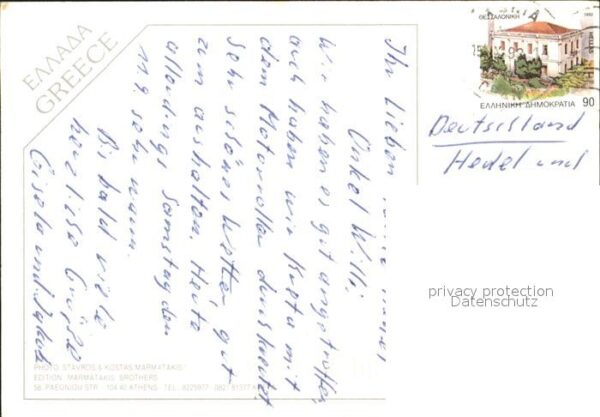 ΕΛΛΑΔΑ
GREECE
ΘΕΣΣΑΛΟΝΙΚΗ
1992
ΕΛΛΗΝΙΚΗ ΔΗΜΟΚΡΑΤΙΑ
90
Deutschland
Hedel und
Ihr Lieben
Onkel Willi,
Wir haben es gut angetroffen,
auch haben wir Kreta mit
dem Motorroller durchkreuzt
Sehr schönes Wetter, gut
zum aushalten. Heute
allerdings Samstag den
11.9 sehr warm.
Bis bald viele
herzliche Grüße
Gisela und Jakob
PHOTO: STAVROS & KOSTAS MARMATAKIS
EDITION: MARMATAKIS BROTHERS
58, PAEONIOU STR. 104 42 ATHENS TEL.: 8225977 - 082/
privacy protection
Datenschutz